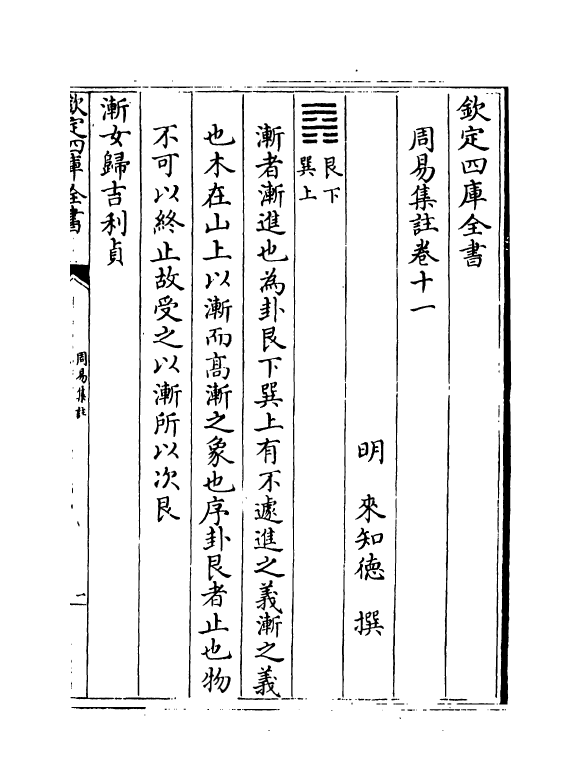 欽定四庫全書
周易集註卷十一
明 來知德 撰
䷴ 艮下
巽上
漸者漸進也為卦艮下巽上有不遽進之義漸之義
也木在山上以漸而髙漸之象也序卦艮者止也物
不可以終止故受之以漸所以次艮
漸女歸吉利貞
欽定四庫全書
周易集註
二